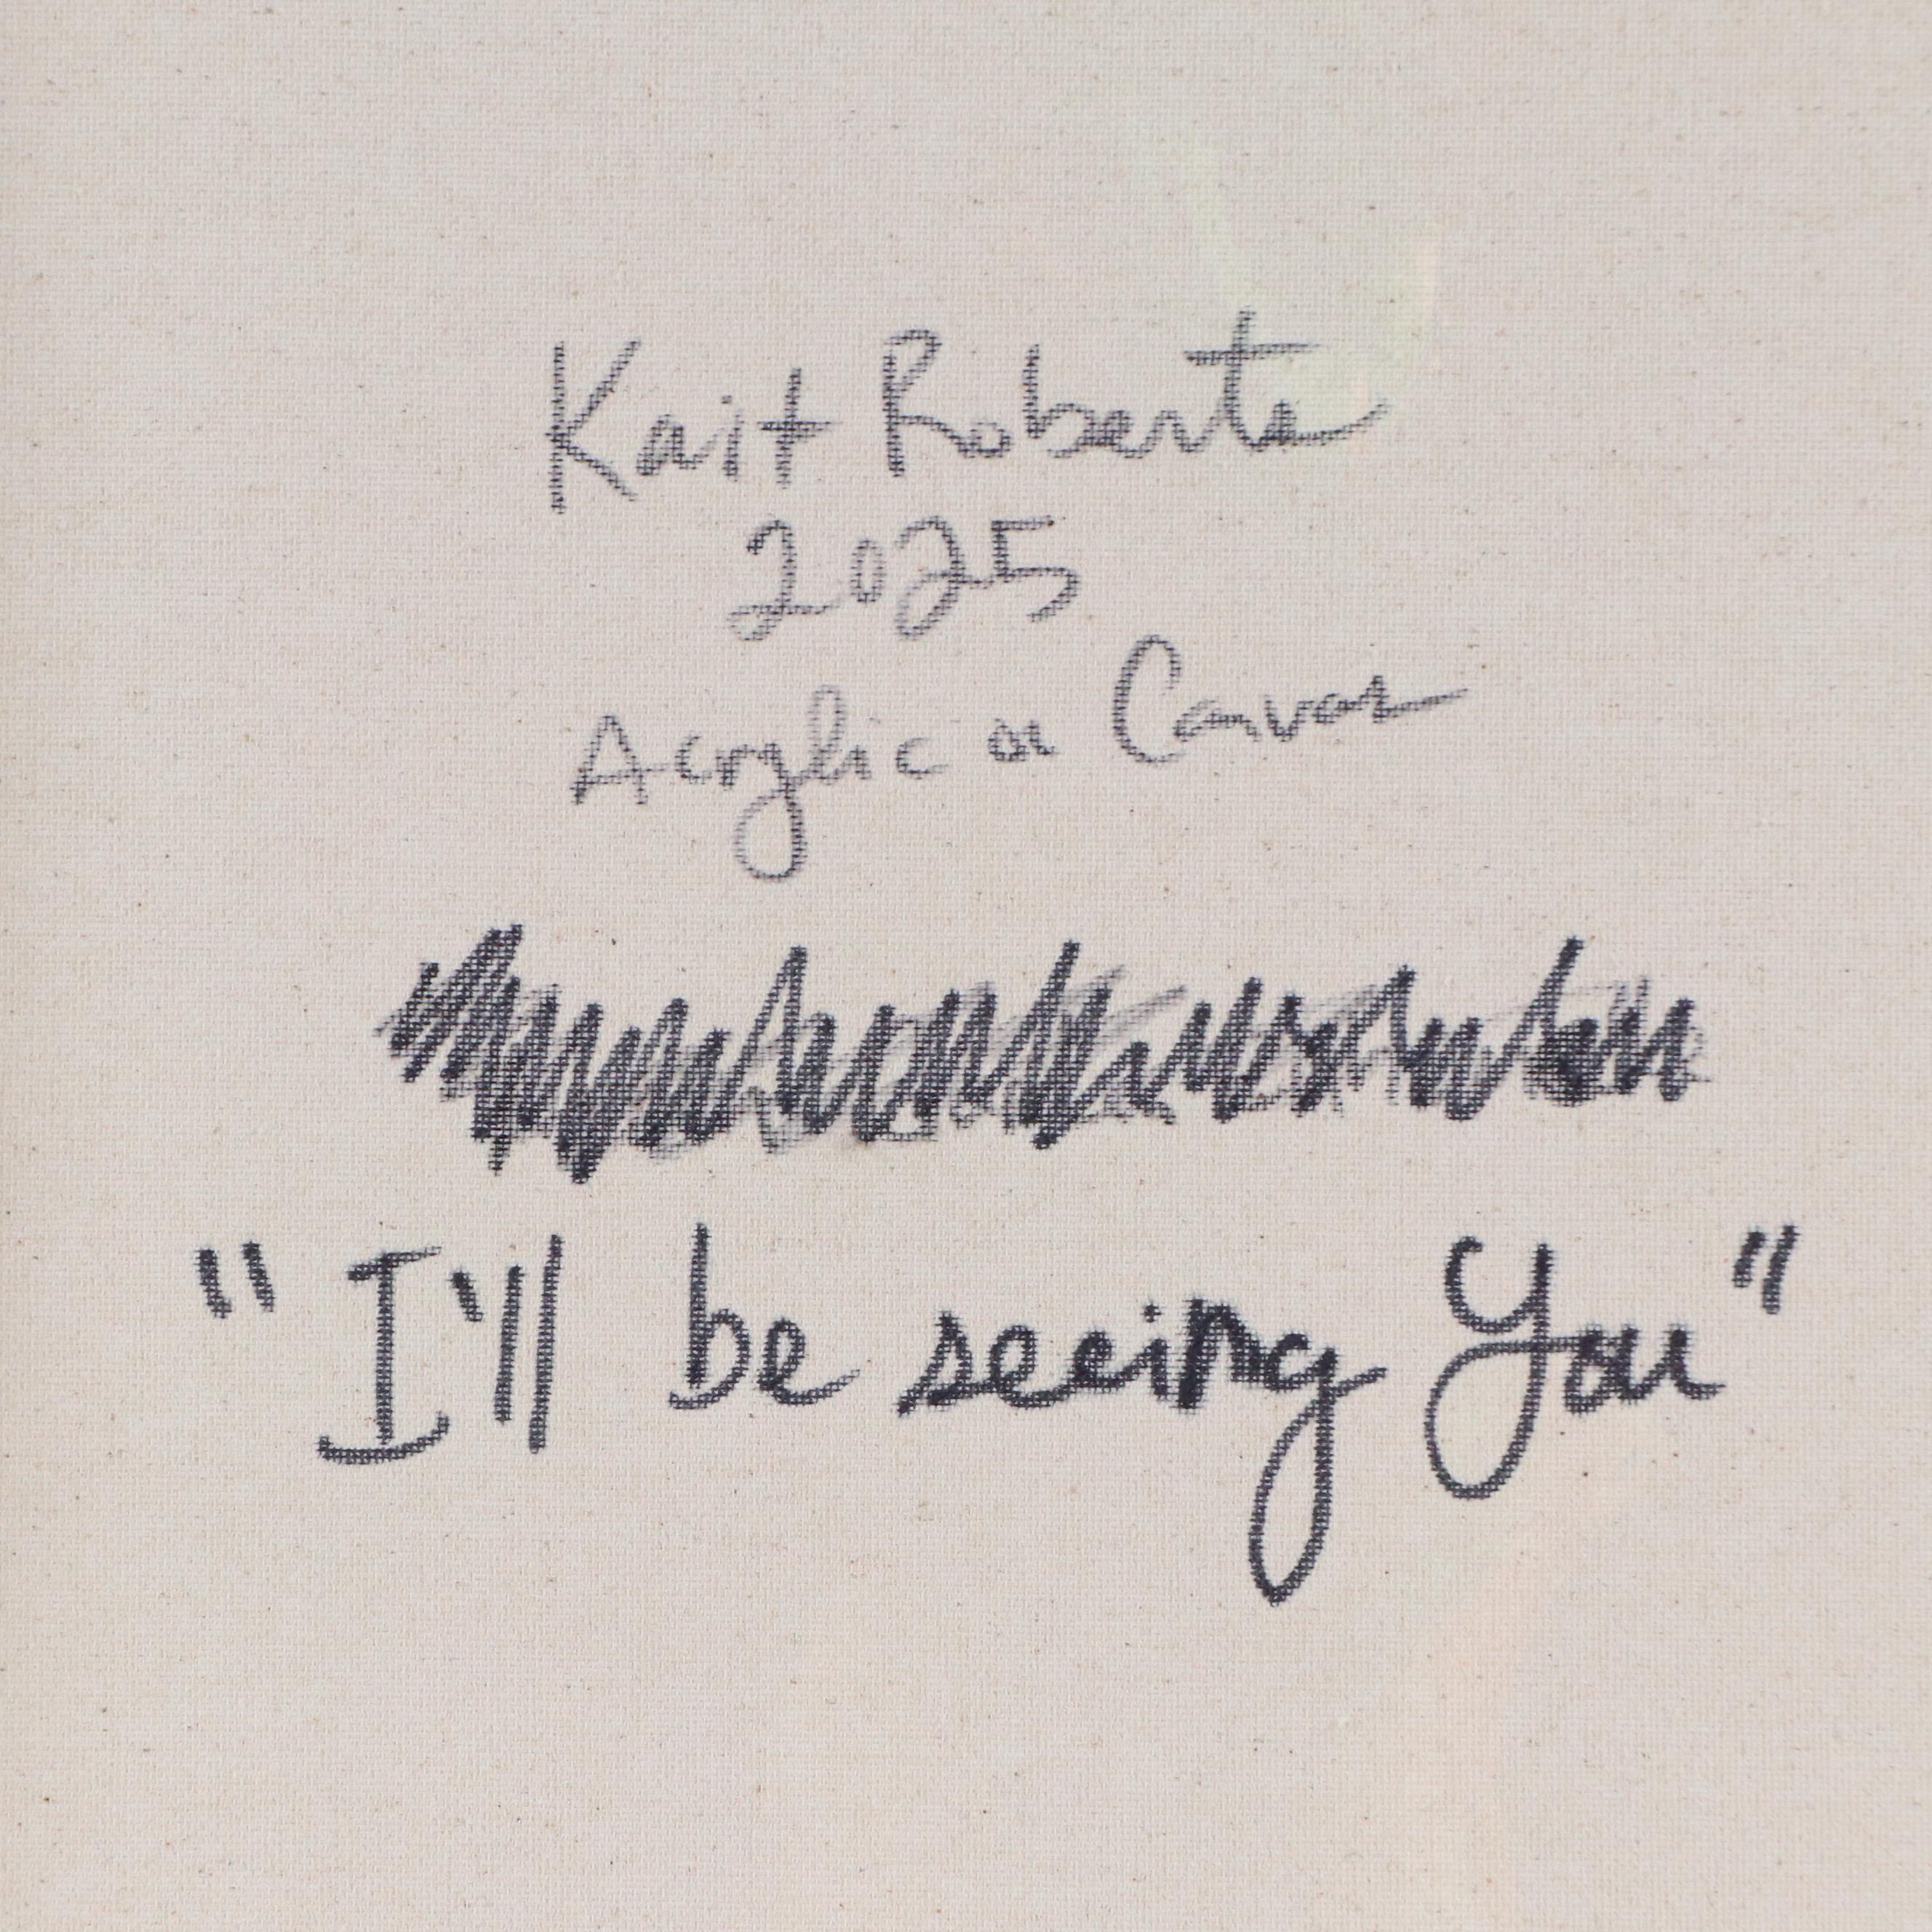 Kait Roberts
2025
Acrylic on Canvas
"I'll be seeing You"